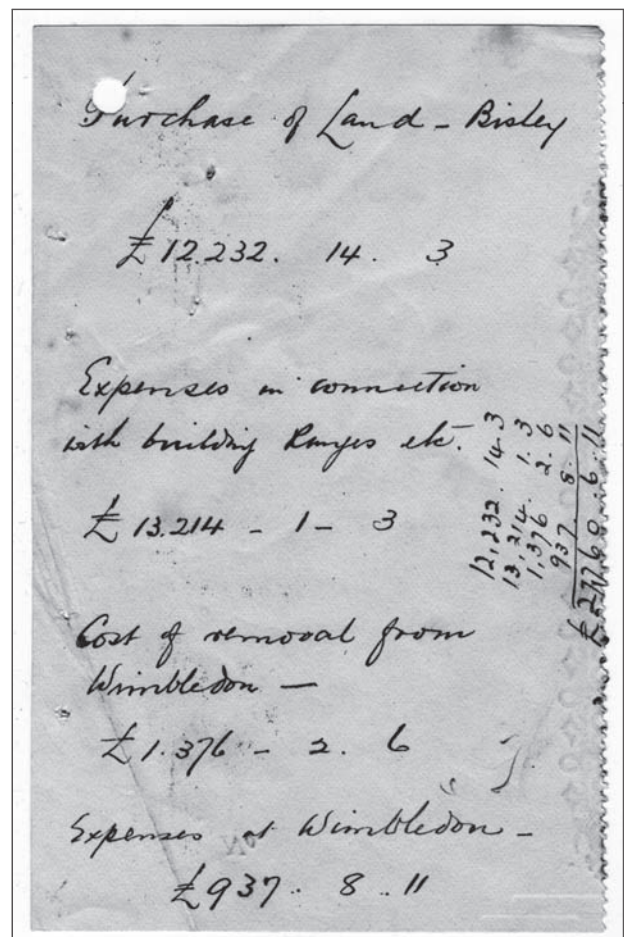 Purchase of Land - Bisley
£12.232. 14. 3
Expenses in connection
with building Ranges etc.
£13.214 - 1 - 3
Cost of removal from
Wimbledon —
£1.376 - 2. 6
Expenses at Wimbledon -
£937. 8 .. 11
12,232. 14.3
13,214. 1.3
1,376 2.6
937. 8.11
£27760..6.11